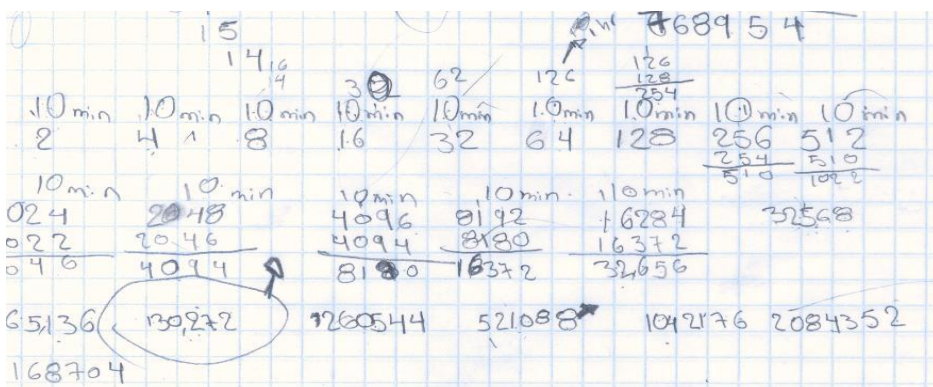 15 768954
14 16
4 30 62 126 126
128
254
10 min 10 min 10 min 10 min 10 min 10 min 10 min 10 min 10 min
2 4 8 16 32 64 128 256 512
254 510
510 1022
10 min 10 min 10 min 10 min 10 min
024 2048 4096 8192 16284 32568
022 2046 4094 8180 16372
046 4094 8180 16372 32,656
65,136 130,272 260544 521088 1042176 2084352
168704